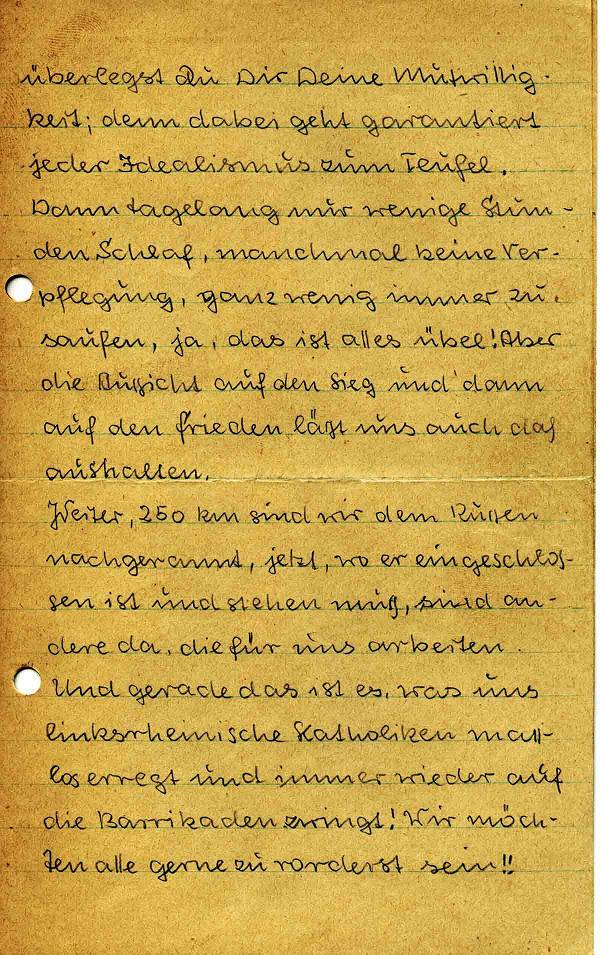 überlegst Du Dir Deine Mutwillig-
keit; denn dabei geht garantiert
jeder Idealismus zum Teufel.
Dann tagelang nur wenige Stun-
den Schlaf, manchmal keine Ver-
pflegung, ganz wenig immer zu
saufen, ja, das ist alles übel! Aber
die Aussicht auf den Sieg und dann
auf den Frieden läßt uns auch das
aushalten.
Weiter, 250 km sind wir dem Russen
nachgerannt, jetzt, wo er eingeschlos-
sen ist und stehen muß, sind an-
dere da, die für uns arbeiten.
Und gerade das ist es, was uns
linksrheinische Katholiken maß-
los erregt und immer wieder auf
die Barrikaden zwingt! Wir möch-
ten alle gerne zu vorderst sein!!